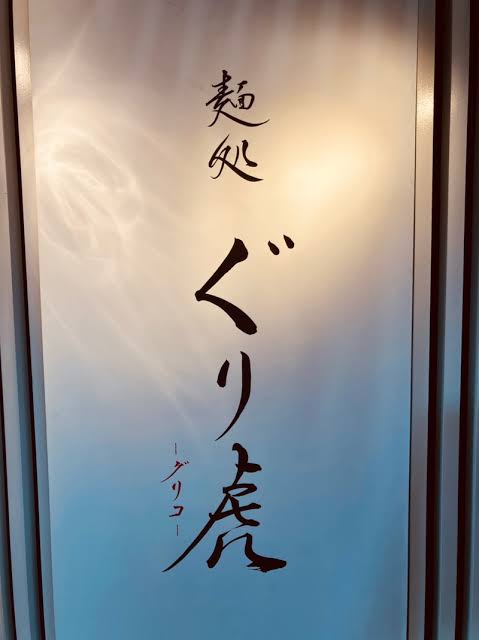 麺処
ぐり虎
-グリコ-